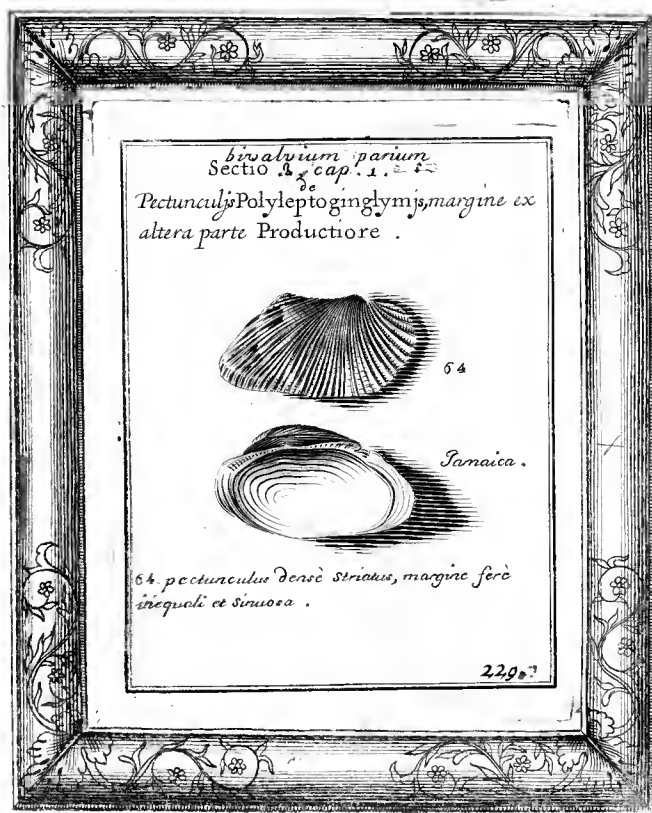 bivalvium parium
Sectio 2. cap. 1.
de
Pectunculjs Polyleptoginglymjs, margine ex
altera parte Productiore .
64
Jamaica .
64. pectunculus dense striatus, margine ferè
inequali et Sinuosa .
229.